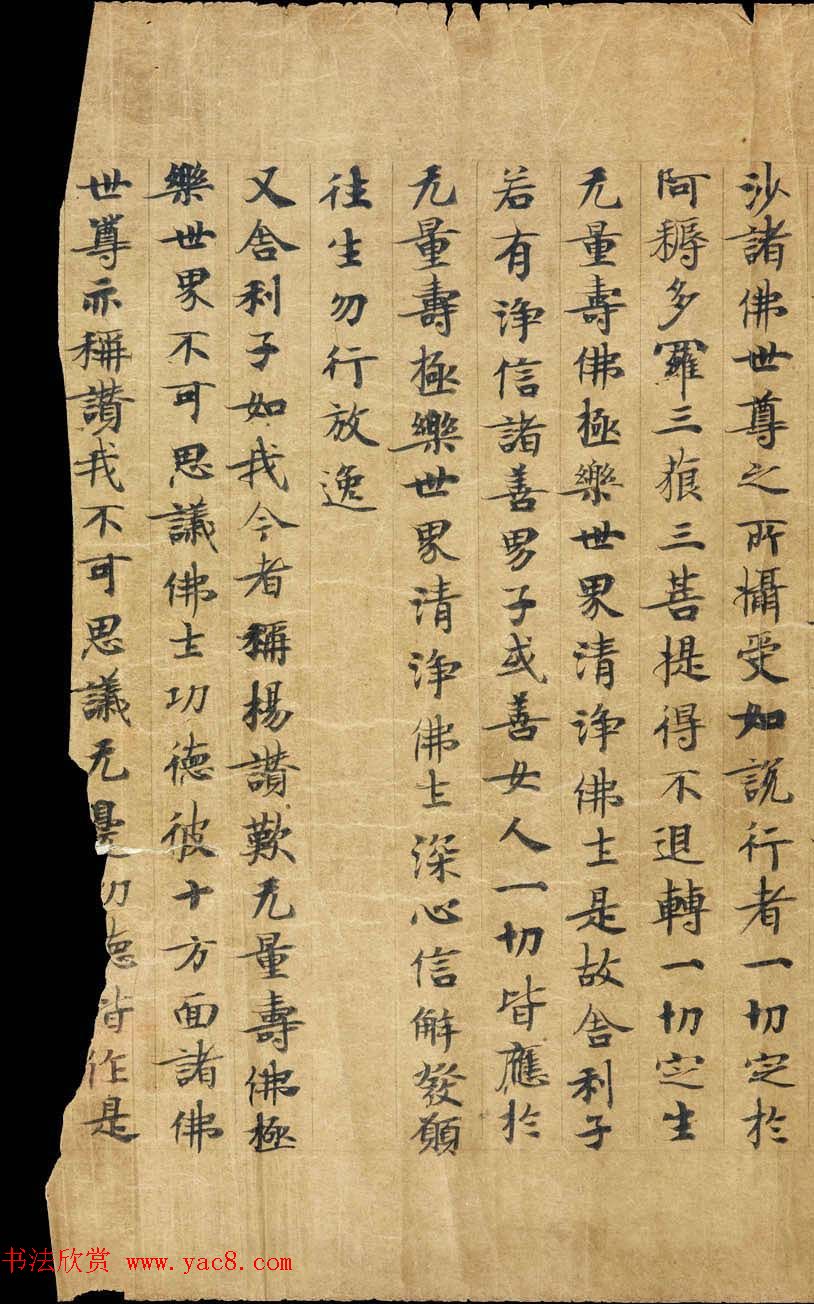 沙諸佛世尊之所攝受如說行者一切定於
阿耨多羅三藐三菩提得不退轉一切定生
无量壽佛極樂世界清淨佛土是故舍利子
若有淨信諸善男子或善女人一切皆應於
无量壽極樂世界清淨佛土深心信解發願
往生勿行放逸
又舍利子如我今者稱揚讚歎无量壽佛極
樂世界不可思議佛土功德彼十方面諸佛
世尊亦稱讚我不可思議无量功德皆作是
书法欣赏 www.yac8.com